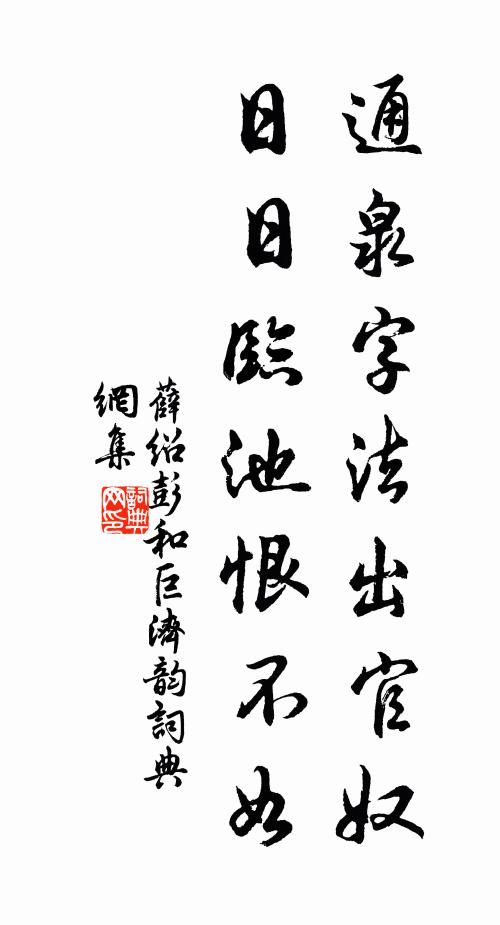 通泉字法出官奴
日日臨池恨不如
薛紹彭和巨濟韵詞典
網集
詞典
网印